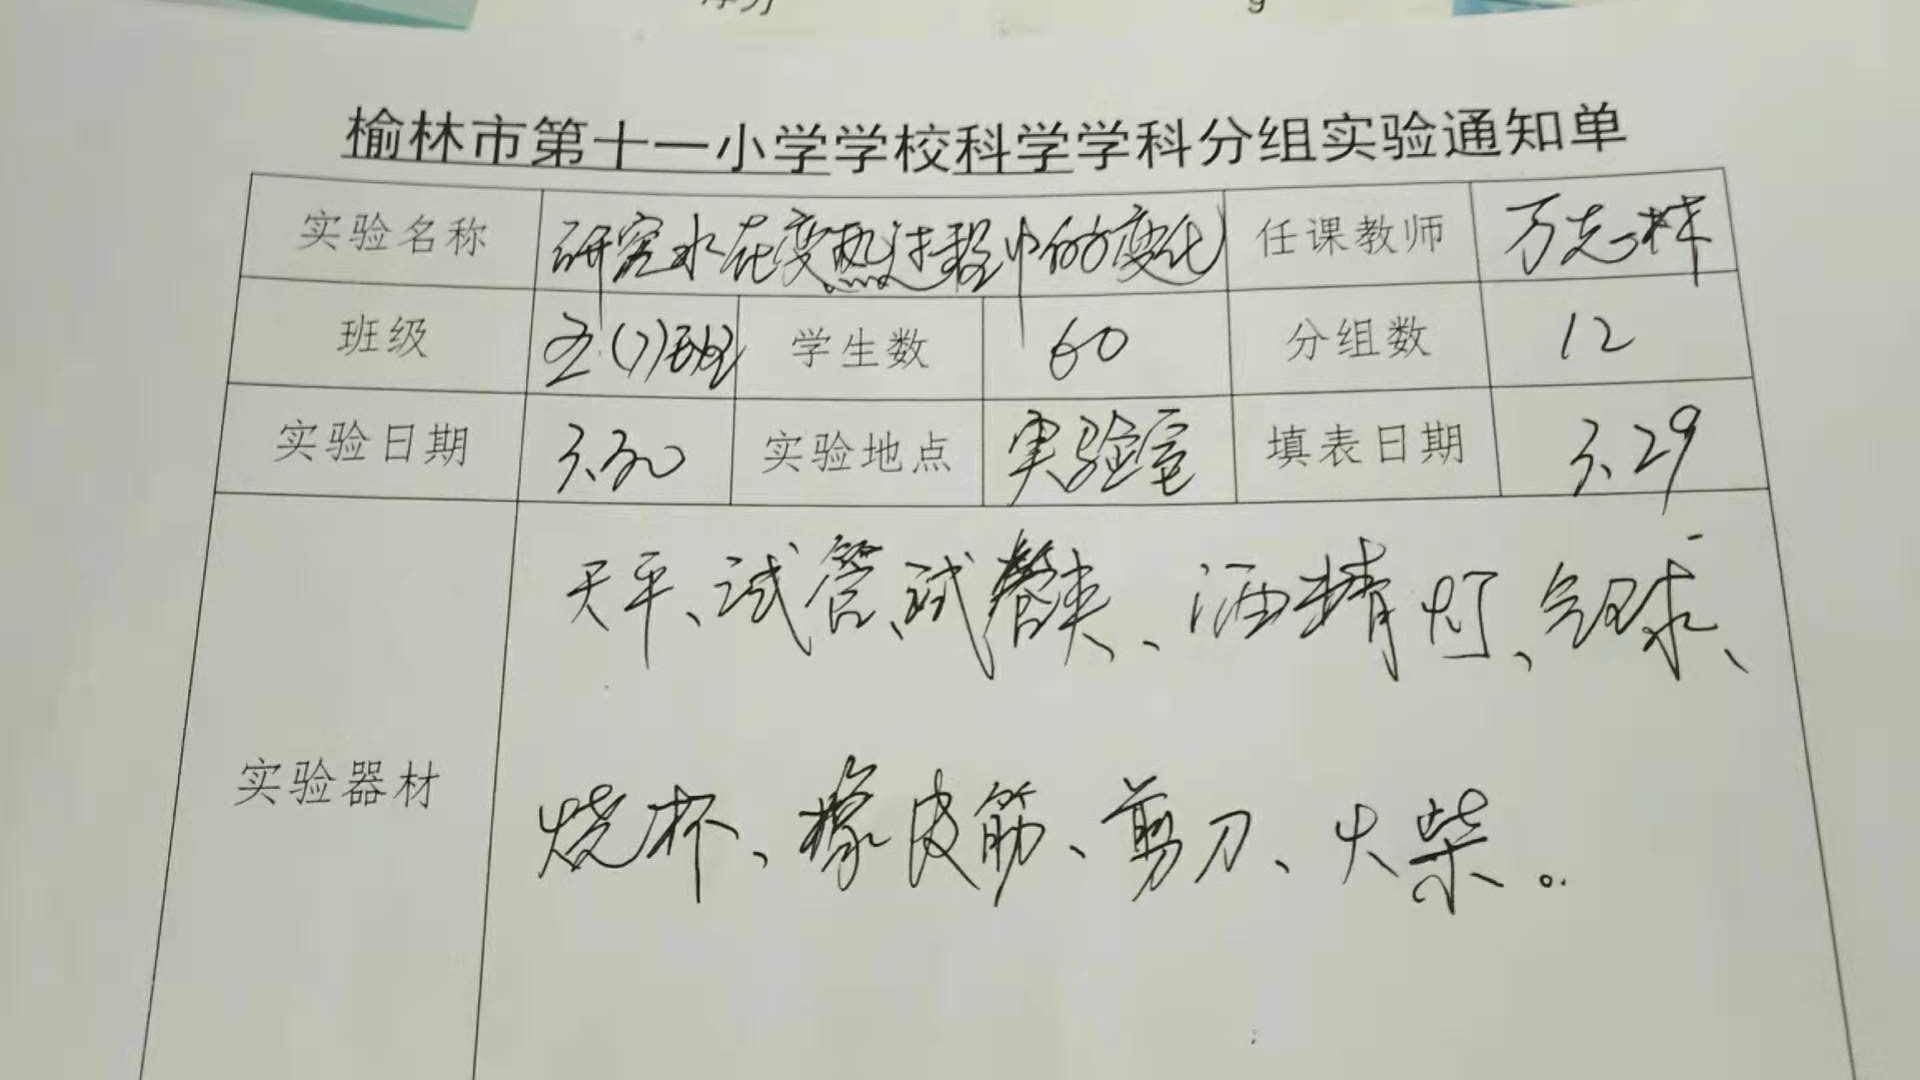 榆林市第十一小学学校科学学科分组实验通知单
实验名称 研究水在变热过程中的变化 任课教师
班级 五(7)班 学生数 60 分组数 12
实验日期 3.30 实验地点 实验室 填表日期 3.29
实验器材
天平、试管、试管夹、酒精灯、气球、
烧杯、橡皮筋、剪刀、火柴。